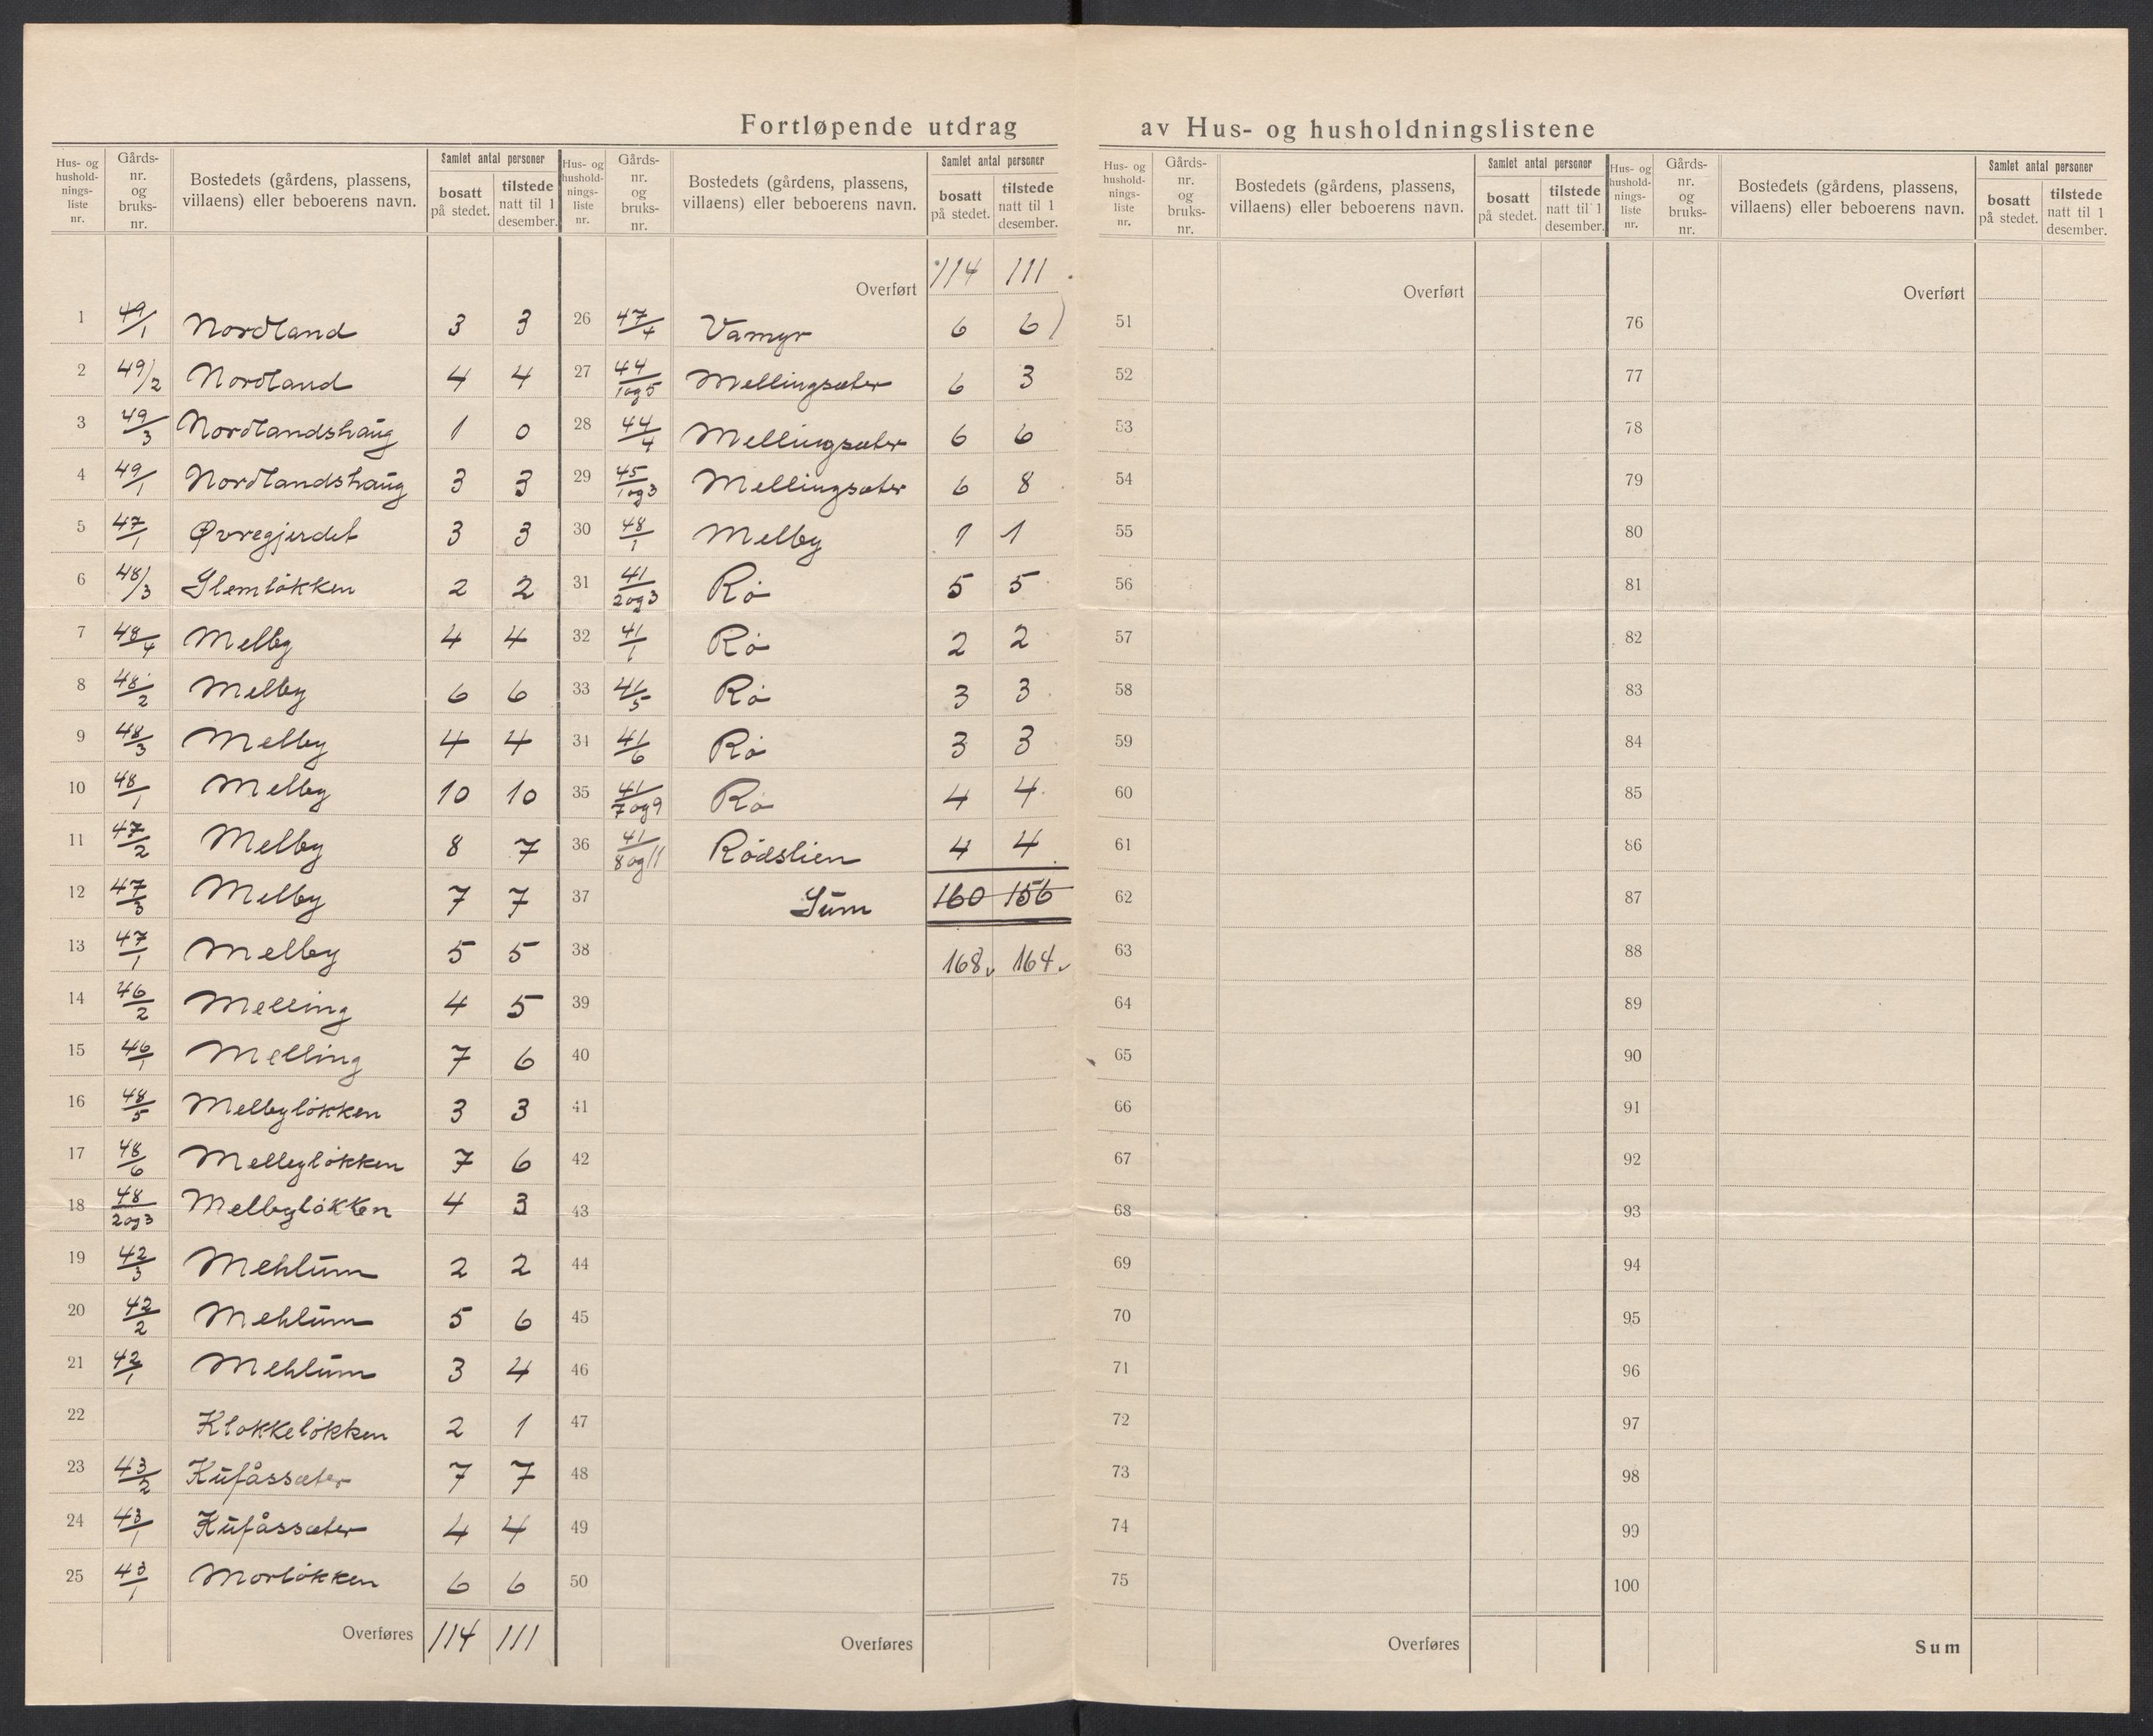 Fortløpende utdrag av Hus- og husholdningslistene
Hus- og hushold- nings- liste nr. | Gårds- nr. og bruks- nr. | Bostedets (gårdens, plassens, villaens) eller beboerens navn. | Samlet antal personer | bosatt på stedet. | tilstede natt til 1 desember.
1 49/1 Nordland 3 3
2 49/2 Nordland 4 4
3 49/3 Nordlandshaug 1 0
4 49/1 Nordlandshaug 3 3
5 47/1 Øvregjerdet 3 3
6 48/3 Slemløkken 2 2
7 48/4 Melby 4 4
8 48/2 Melby 6 6
9 48/3 Melby 4 4
10 48/1 Melby 10 10
11 47/2 Melby 8 7
12 47/3 Melby 7 7
13 47/1 Melby 5 5
14 46/2 Melling 4 5
15 46/1 Melling 7 6
16 48/5 Melbyløkken 3 3
17 48/6 Melbyløkken 7 6
18 48/2og3 Melbyløkken 4 3
19 42/3 Mehlum 2 2
20 42/2 Mehlum 5 6
21 42/1 Mehlum 3 4
22 Klokkeløkken 2 1
23 43/2 Kufåssæter 7 7
24 43/1 Kufåssæter 4 4
25 43/1 Morløkken 6 6
Overføres 114 111
Hus- og hushold- nings- liste nr. | Gårds- nr. og bruks- nr. | Bostedets (gårdens, plassens, villaens) eller beboerens navn. | Samlet antal personer | bosatt på stedet. | tilstede natt til 1 desember.
Overført 114 111
26 47/4 Vamyr 6 6
27 44/1og5 Mellingsæter 6 3
28 44/4 Mellingsæter 6 6
29 45/1og3 Mellingsæter 6 8
30 48/1 Melby 1 1
31 41/2og3 Rø 5 5
32 41/1 Rø 2 2
33 41/5 Rø 3 3
34 41/6 Rø 3 3
35 41/7og9 Rø 4 4
36 41/8og11 Rødslien 4 4
37 Sum 160 156
38 168 164
39
40
41
42
43
44
45
46
47
48
49
50
Overføres
Hus- og hushold- nings- liste nr. | Gårds- nr. og bruks- nr. | Bostedets (gårdens, plassens, villaens) eller beboerens navn. | Samlet antal personer | bosatt på stedet. | tilstede natt til 1 desember.
Overført
51
52
53
54
55
56
57
58
59
60
61
62
63
64
65
66
67
68
69
70
71
72
73
74
75
Overføres
Hus- og hushold- nings- liste nr. | Gårds- nr. og bruks- nr. | Bostedets (gårdens, plassens, villaens) eller beboerens navn. | Samlet antal personer | bosatt på stedet. | tilstede natt til 1 desember.
Overført
76
77
78
79
80
81
82
83
84
85
86
87
88
89
90
91
92
93
94
95
96
97
98
99
100
Sum